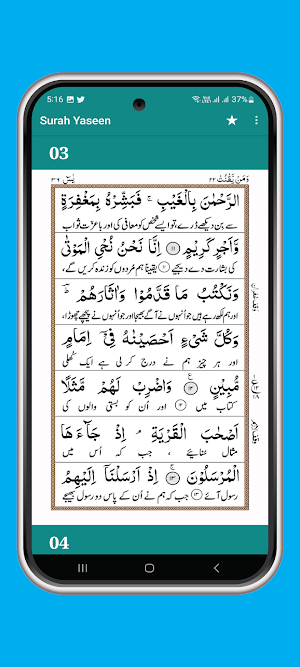 5:16 37%
Surah Yaseen
03
وَمَنْ يَّقْنُتْ ٢٢ يٰسٓ ٣٦
الرَّحْمٰنَ بِالْغَيْبِ ۚ فَبَشِّرْهُ بِمَغْفِرَةٍ
سے بن دیکھے ڈرے، تو ایسے شخص کو معافی کی اور باعزت ثواب
وَّاَجْرٍ كَرِيْمٍ ۝۱۱ اِنَّا نَحْنُ نُحْيِ الْمَوْتٰى
کی بشارت دے دیجیے ۝ یقیناً ہم مُردوں کو زندہ کریں گے،
وَنَكْتُبُ مَا قَدَّمُوْا وَاٰثَارَهُمْ ؕ
اور ہم لکھ رہے ہیں جو انہوں نے آگے بھیجا اور جو انہوں نے پیچھے چھوڑا،
وَكُلَّ شَيْءٍ اَحْصَيْنٰهُ فِيْٓ اِمَامٍ
اور ہر چیز ہم نے درج کر لی ہے ایک کھلی
مُّبِيْنٍ ۝۱۲ وَاضْرِبْ لَهُمْ مَّثَلًا
کتاب میں ۝ اور اُن کو بستی والوں کی
اَصْحٰبَ الْقَرْيَةِ ۘ اِذْ جَآءَهَا
مثال سُنائیے ، جب کہ اُس میں
الْمُرْسَلُوْنَ ۝۱۳ اِذْ اَرْسَلْنَآ اِلَيْهِمُ
رسول آئے ۝۱۳ جب کہ ہم نے اُن کے پاس دو رسول بھیجے
04